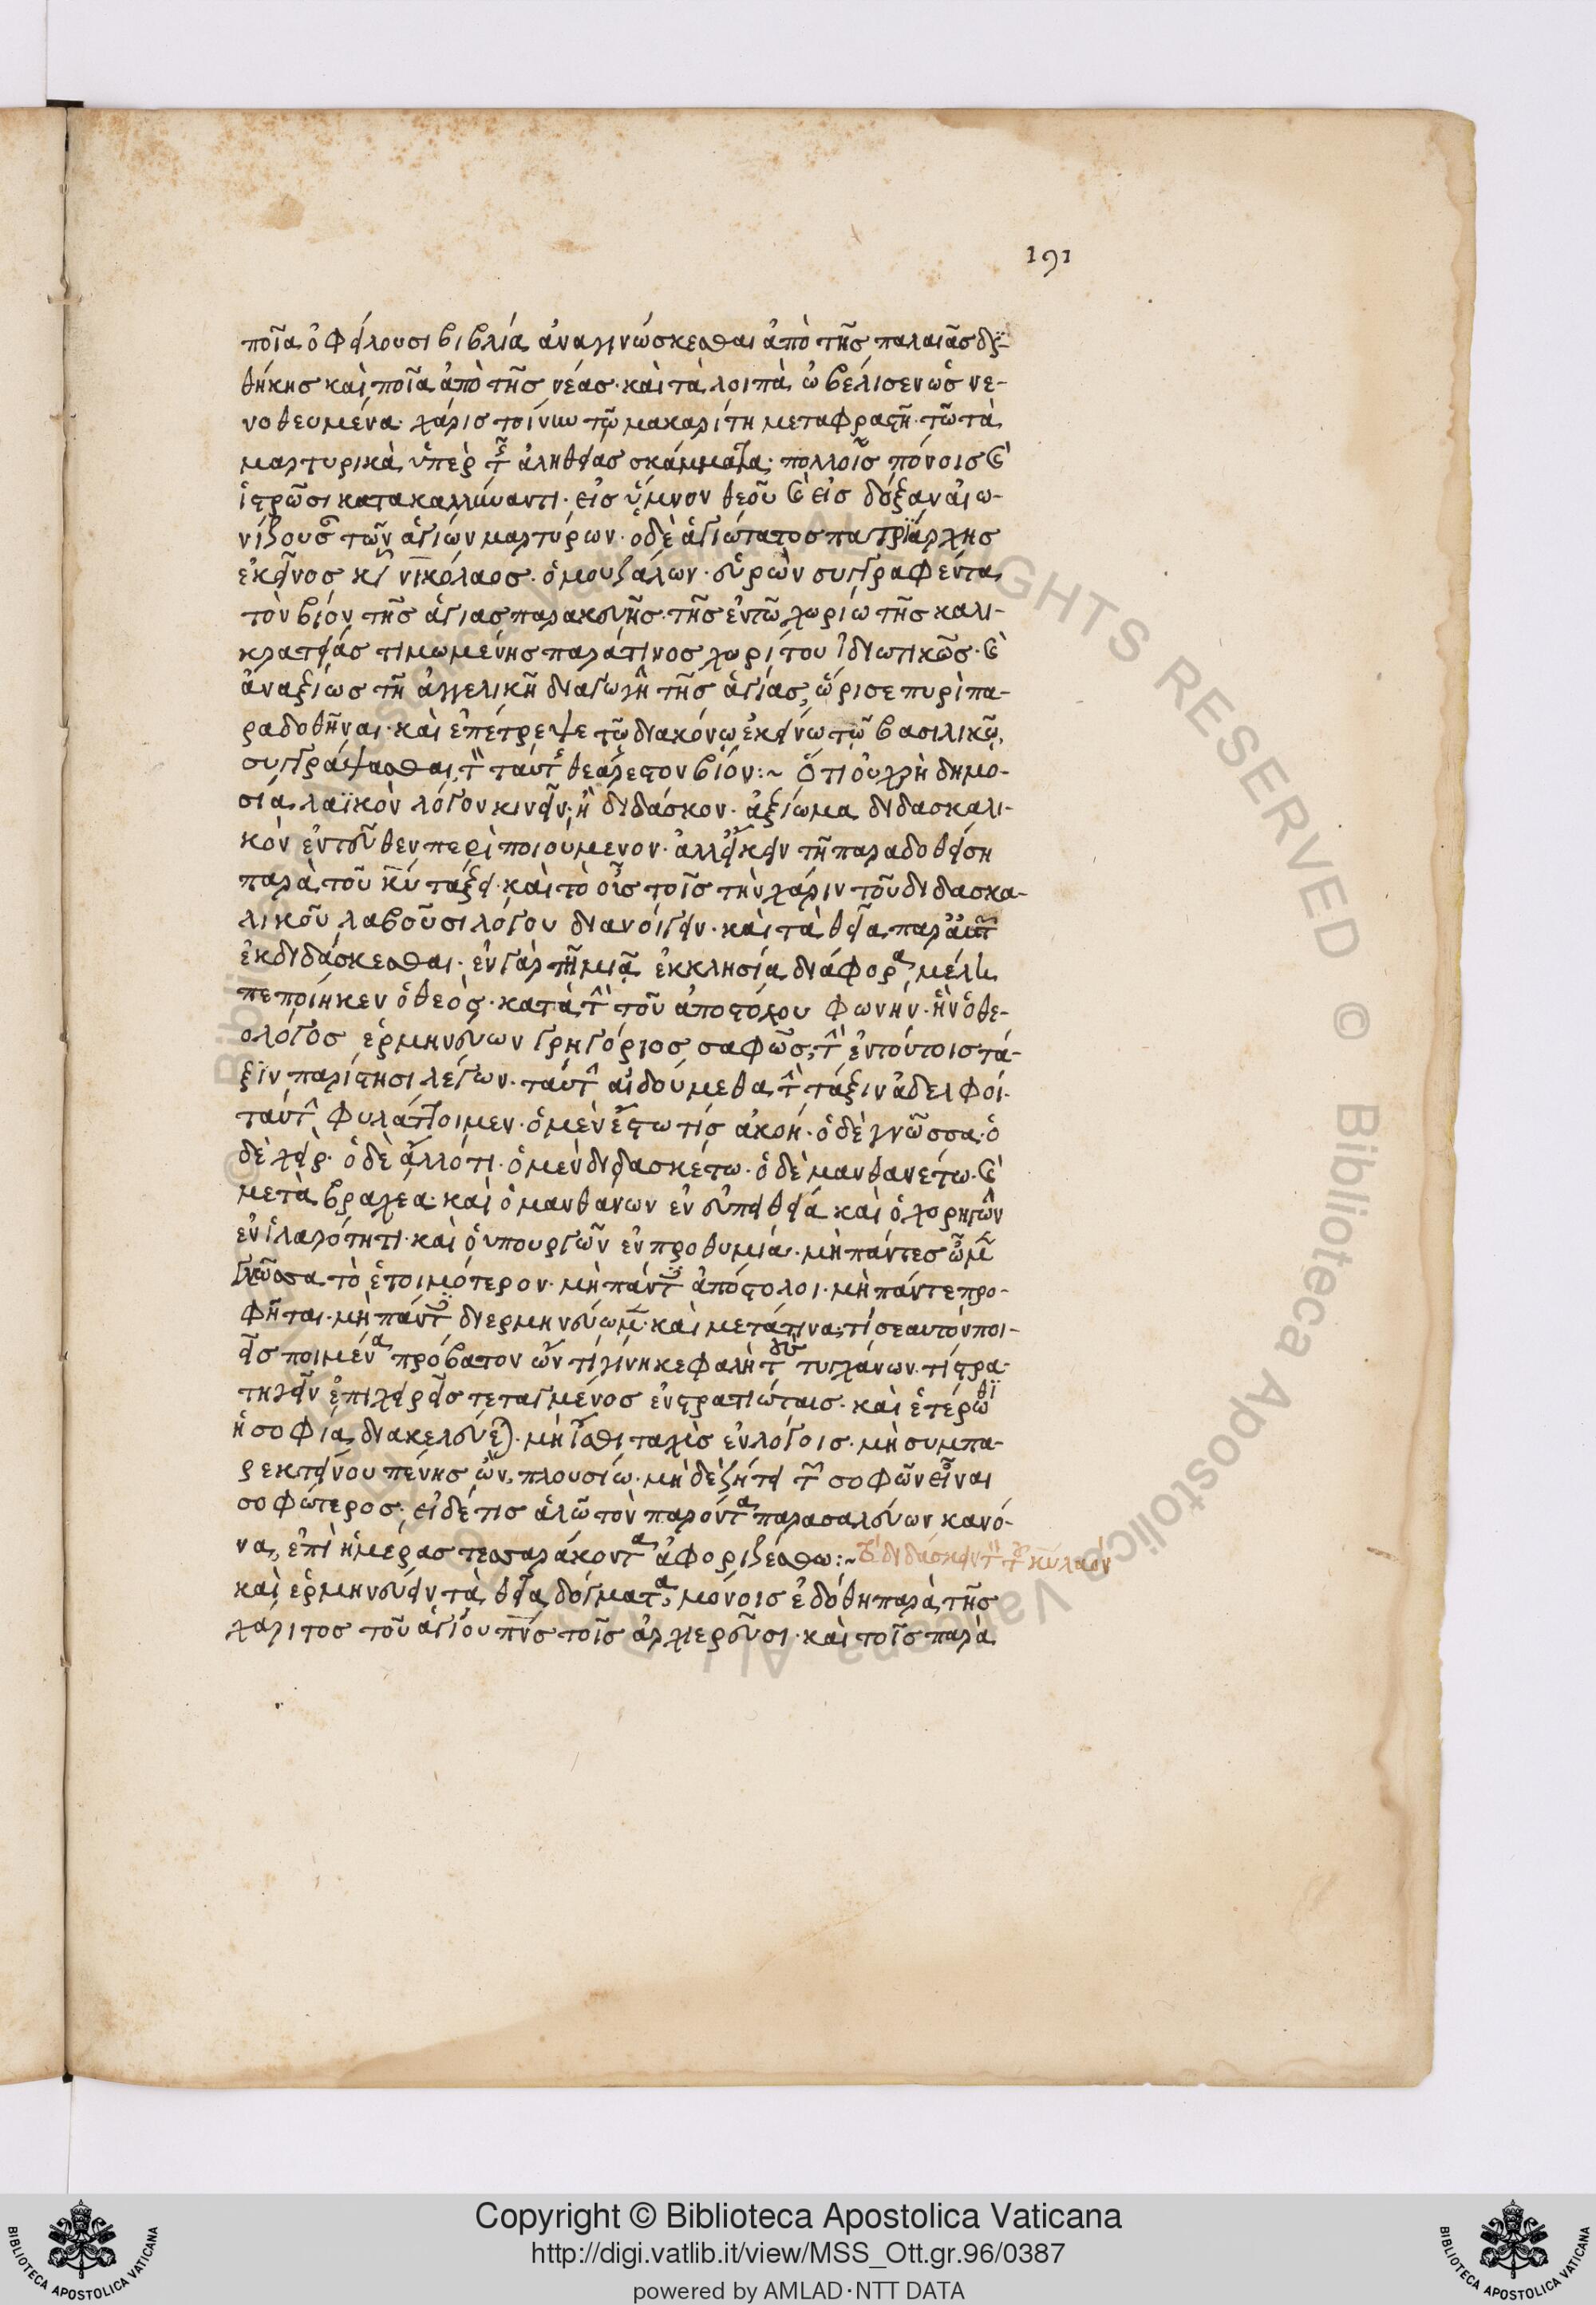 191
ποῖα ὀφείλουσι βιβλία ἀναγινώσκεσθαι ἀπὸ τῆς παλαιᾶς δϊα-
θήκης καὶ ποῖα ἀπὸ τῆς νέας· καὶ τὰ λοιπὰ ὠβέλισεν ὡς νε-
νοθευμένα· χάρις τοίνυν τῷ μακαρίτῃ μεταφραστῇ· τῷ τὰ
μαρτυρικὰ ὑπὲρ τῆς ἀληθείας σκάμματα· πολλοῖς πόνοις καὶ
ἱδρῶσι κατακαλλύναντι· εἰς ὕμνον θεοῦ καὶ εἰς δόξαν αἰω-
νίζουσαν τῶν ἁγίων μαρτύρων· ὁ δὲ ἁγιώτατος πατριάρχης
ἐκεῖνος κῦρ νικόλαος· ὁ μουζάλων· εὑρὼν συγγραφέντα
τὸν βίον τῆς ἁγίας παρακευῆς· τῆς ἐν τῷ χωρίω τῆς καλι-
κρατείας τιμωμένης παρά τινος χωρίτου ἰδιωτικῶς· καὶ
ἀναξίως τῇ ἀγγελικῇ διαγωγῇ τῆς ἁγίας, ὥρισε πυρὶ πα-
ραδοθῆναι· καὶ ἐπέτρεψε τῷ διακόνῳ ἐκείνω τῷ βασιλικῷ,
συγγράψασθαι τὸν ταύτης θεάρεστον βίον:~ Ὅτι οὐ χρὴ δημο-
σία λαϊκὸν λόγον κινεῖν· ἢ διδάσκον· ἀξίωμα διδασκαλι-
κὸν ἐντεῦθεν περιποιούμενον· ἀλλ' εἴκειν τῇ παραδοθείσῃ
παρὰ τοῦ κ̅υ̅ τάξει· καὶ τὸ οὖς τοῖς τὴν χάριν τοῦ διδασκα-
λικοῦ λαβοῦσι λόγου διανοίγειν· καὶ τὰ θεῖα παρ' αὐτῶν
ἐκδιδάσκεσθαι· ἐν γὰρ τῇ μιᾷ ἐκκλησία διάφορα μέλη
πεποίηκεν ὁ θεὸς· κατὰ τὴν τοῦ ἀποστόλου φωνήν· ἣν ὁ θε-
ολόγος ἑρμηνεύων γρηγόριος σαφῶς, τὴν ἐν τούτοις τά-
ξϊν παρίστησι λέγων· ταύτην αἰδούμεθα τὴν τάξιν ἀδελφοί·
ταύτην φυλάττοιμεν· ὁ μὲν ἔστω τίς ἀκοή· ὁ δὲ γλῶσσα· ὁ
δὲ χείρ· ὁ δὲ ἄλλό τι· ὁ μὲν διδασκέτω· ὁ δὲ μανθανέτω· καὶ
μετὰ βραχέα· καὶ ὁ μανθάνων ἐν εὐπειθεία καὶ ὁ χορηγῶν
ἐν ἱλαρότητι· καὶ ὁ ὑπουργῶν ἐν προθυμία· μὴ πάντες ὦμεν
γλῶσσα τὸ ἑτοιμότερον· μὴ πάντες ἀπόστολοι· μὴ πάντε προ-
φῆται· μὴ πάντες διερμηνεύωμεν· καὶ μετά τινα· τί σεαυτὸν ποι-
εῖς ποιμένα πρόβατον ὤν τί γίνη κεφαλὴ ποὺς τυγχάνων· τί στρα-
τηγεῖν ἐπιχειρεῖς τεταγμένος ἐν στρατιώταις· καὶ ἑτέρωθϊ
ἡ σοφία διακελεύεται· μὴ ἴσθι ταχὺς ἐν λόγοις· μὴ συμπα-
ρεκτείνου πένης ὢν πλουσίω· μὴ δὲ ζήτει τῶν σοφῶν εἶναι
σοφώτερος· εἰ δέ τις ἁλῷ τὸν παρόντα παρασαλεύων κανό-
να, ἐπὶ ἡμέρας τεσσαράκοντα ἀφοριζέσθω:~ Τὸ διδάσκειν τὸν τοῦ κ̅υ̅ λαὸν
καὶ ἑρμηνεύειν τὰ θεῖα δόγματα, μόνοις ἐδόθη παρὰ τῆς
χάριτος τοῦ ἁγίου π̅ν̅ς τοῖς ἀρχιερεῦσι· καὶ τοῖς παρὰ
Copyright © Biblioteca Apostolica Vaticana
http://digi.vatlib.it/view/MSS_Ott.gr.96/0387
powered by AMLAD·NTT DATA